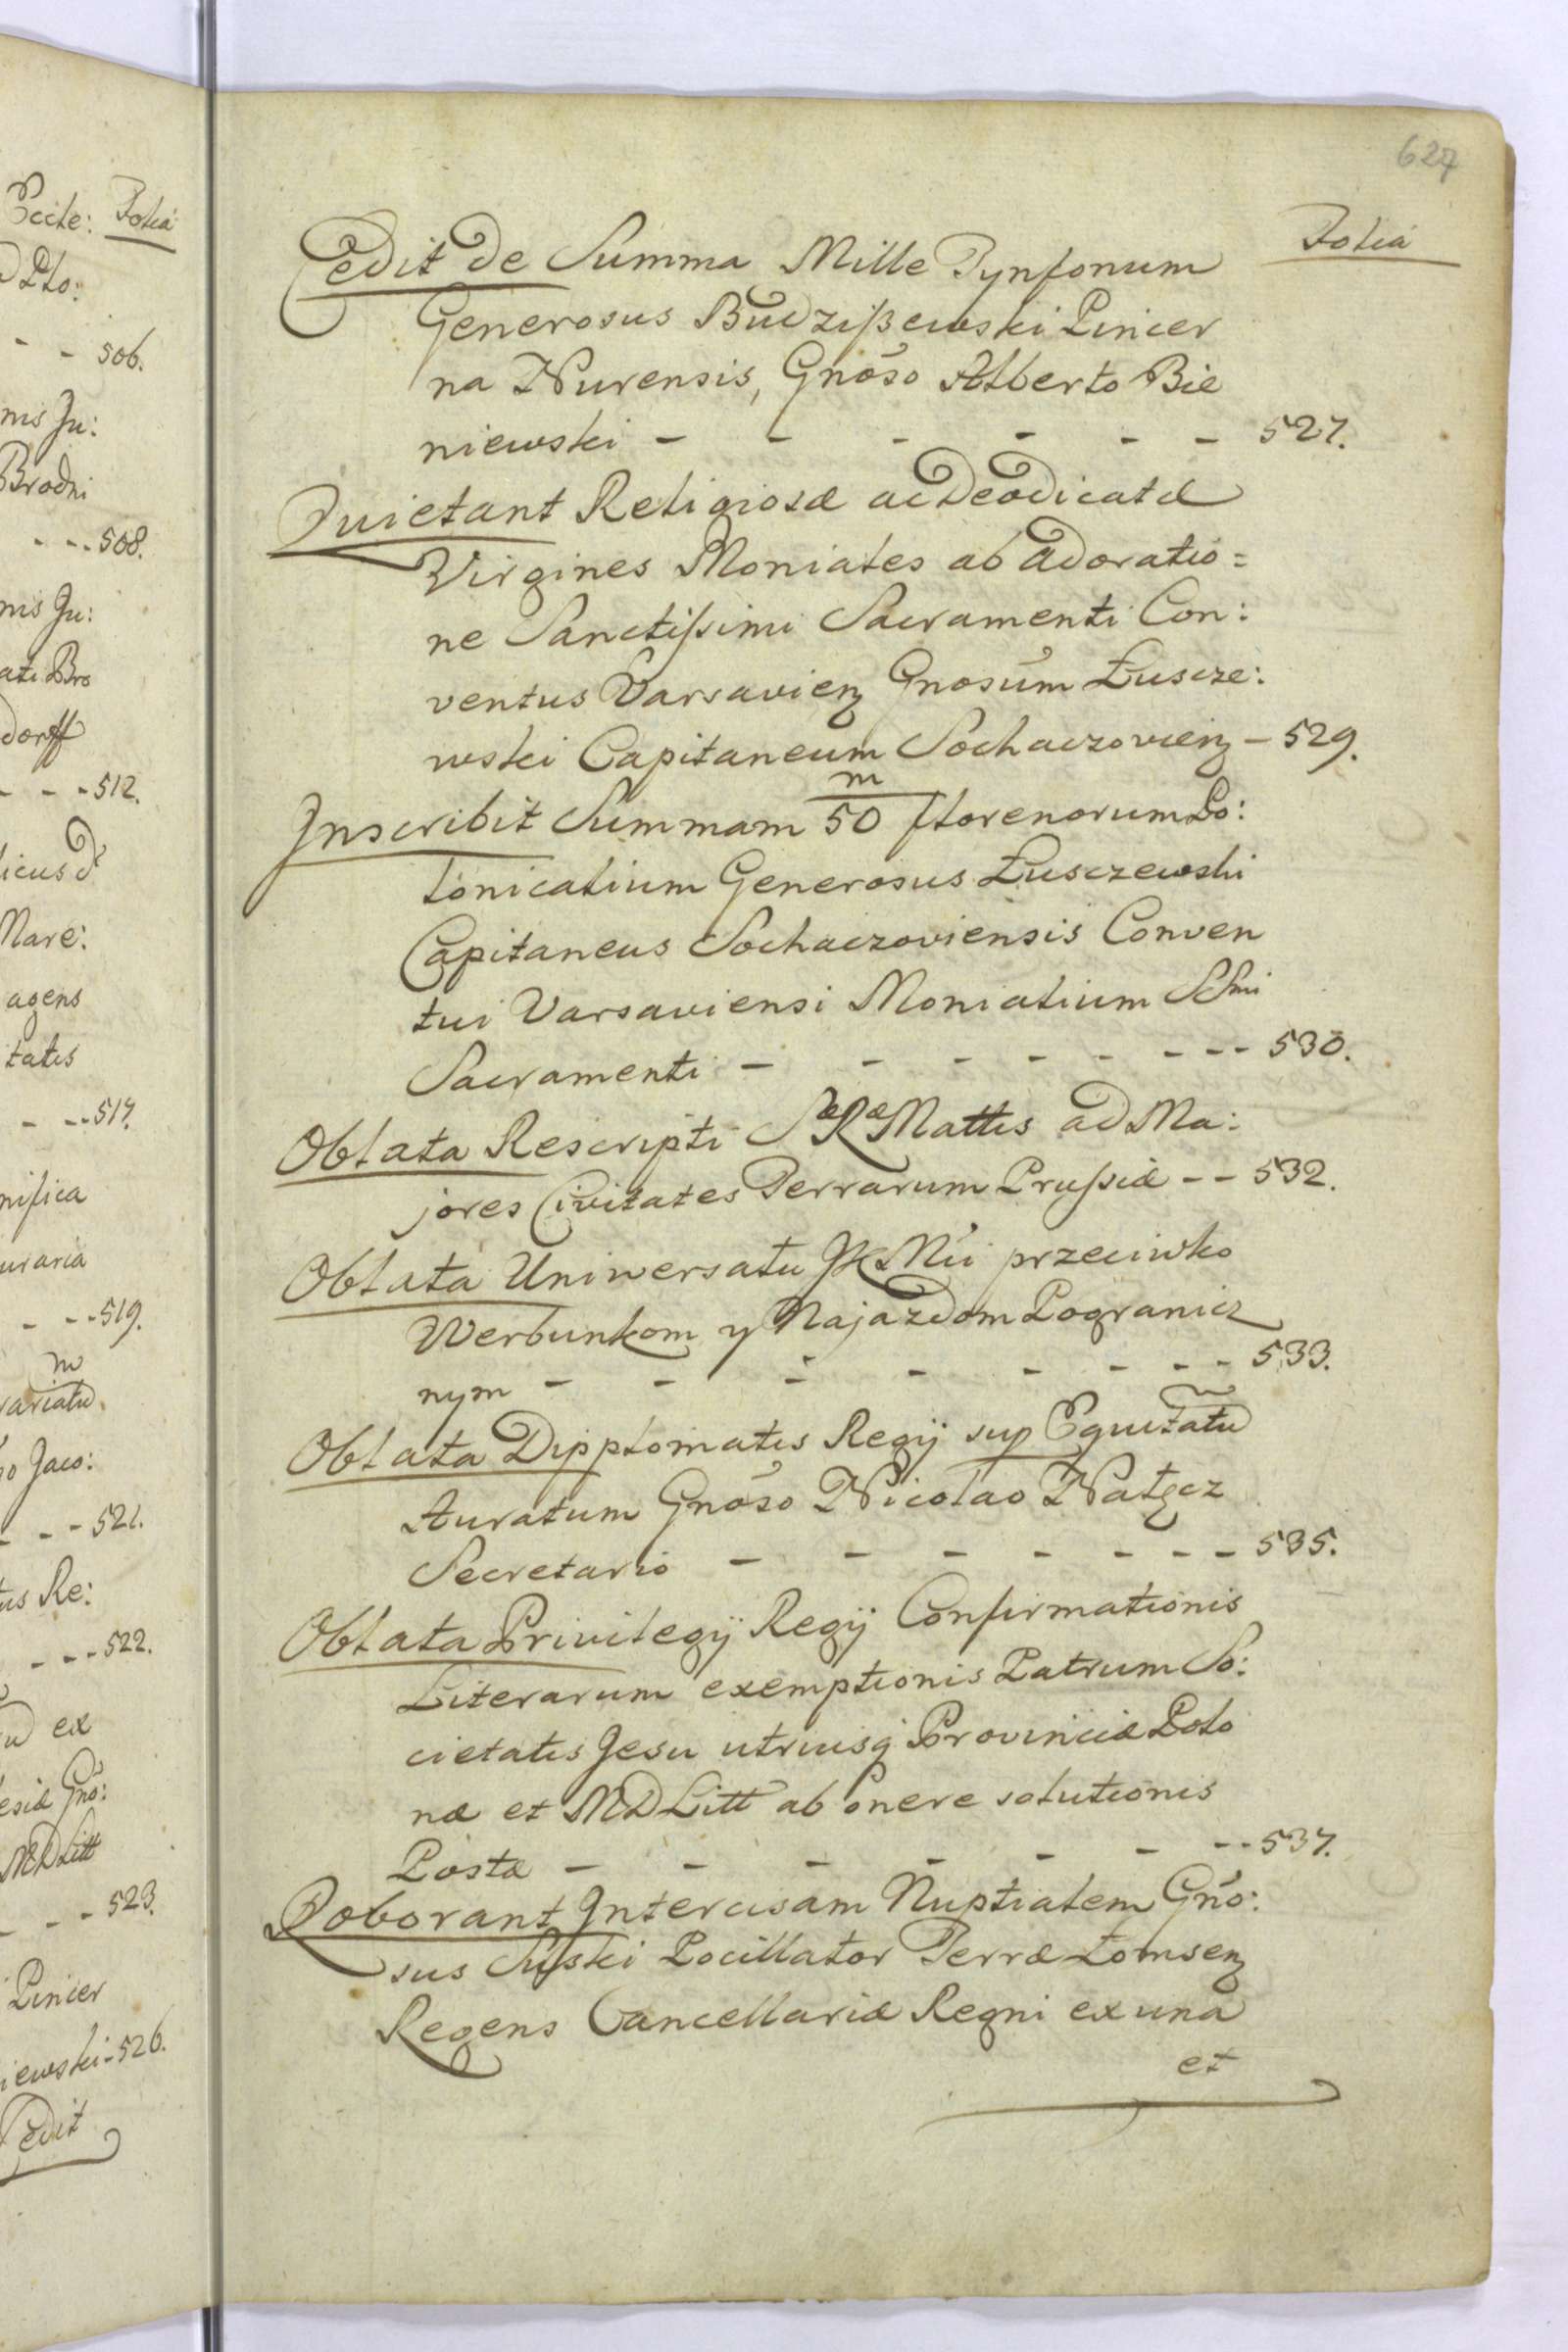 Eccte: Folia
Pto:
- - 506.
nis Ju:
Brodni
- - - 508.
nis Ju:
ati Bro
dorff
- - - 512.
licus d
Mare:
agens
tatis
- - - 517.
nifica
uraria
- - - 519.
m
variatu
o Jaco:
- - - 521.
tus Re:
- - - 522.
ex
esiæ Gno:
MD Litt
- - - 523.
Pincer
iewski - 526.
Cedit
627
Folia
Cedit de Summa Mille Tynfonum
Generosus Budzißewski Pincer
na Nurensis, Gnoso Alberto Bie
niewski - - - - - - 527.
Quietant Religiosæ ac Deo dicatæ
Virgines Moniales ab adoratio=
ne Sanctissimi Sacramenti Con:
ventus Varsavien Gnosum Łuscze:
wski Capitaneum Sochaczovien - 529.
m
Inscribit Summam 50 florenorum Po:
lonicalium Generosus Łusczewski
Capitaneus Sochaczoviensis Conven
tui Varsaviensi Monialium SSmi
Sacramenti - - - - - - - - 530.
Oblata Rescripti SæRæMattis ad Ma:
jores Civitates Terrarum Prussiæ - - 532.
Oblata Uniwersału JKMci przeciwko
Werbunkom y Najazdom Pogranicz
nym - - - - - - - - 533.
Oblata Dipplomatis Regij sup Equitatu
Auratum Gnoso Nicolao Nałęcz
Secretario - - - - - - - 535.
Oblata Privilegij Regij Confirmationis
Literarum exemptionis Patrum So:
cietatis Jesu utriusq Provinciæ Polo
næ et MD Litt ab onere solutionis
Postæ - - - - - - - - 537.
Roborant Intercisam Nuptialem Gno:
sus Suski Pocillator Terræ Łomsen
Regens Cancellariæ Regni ex una
et